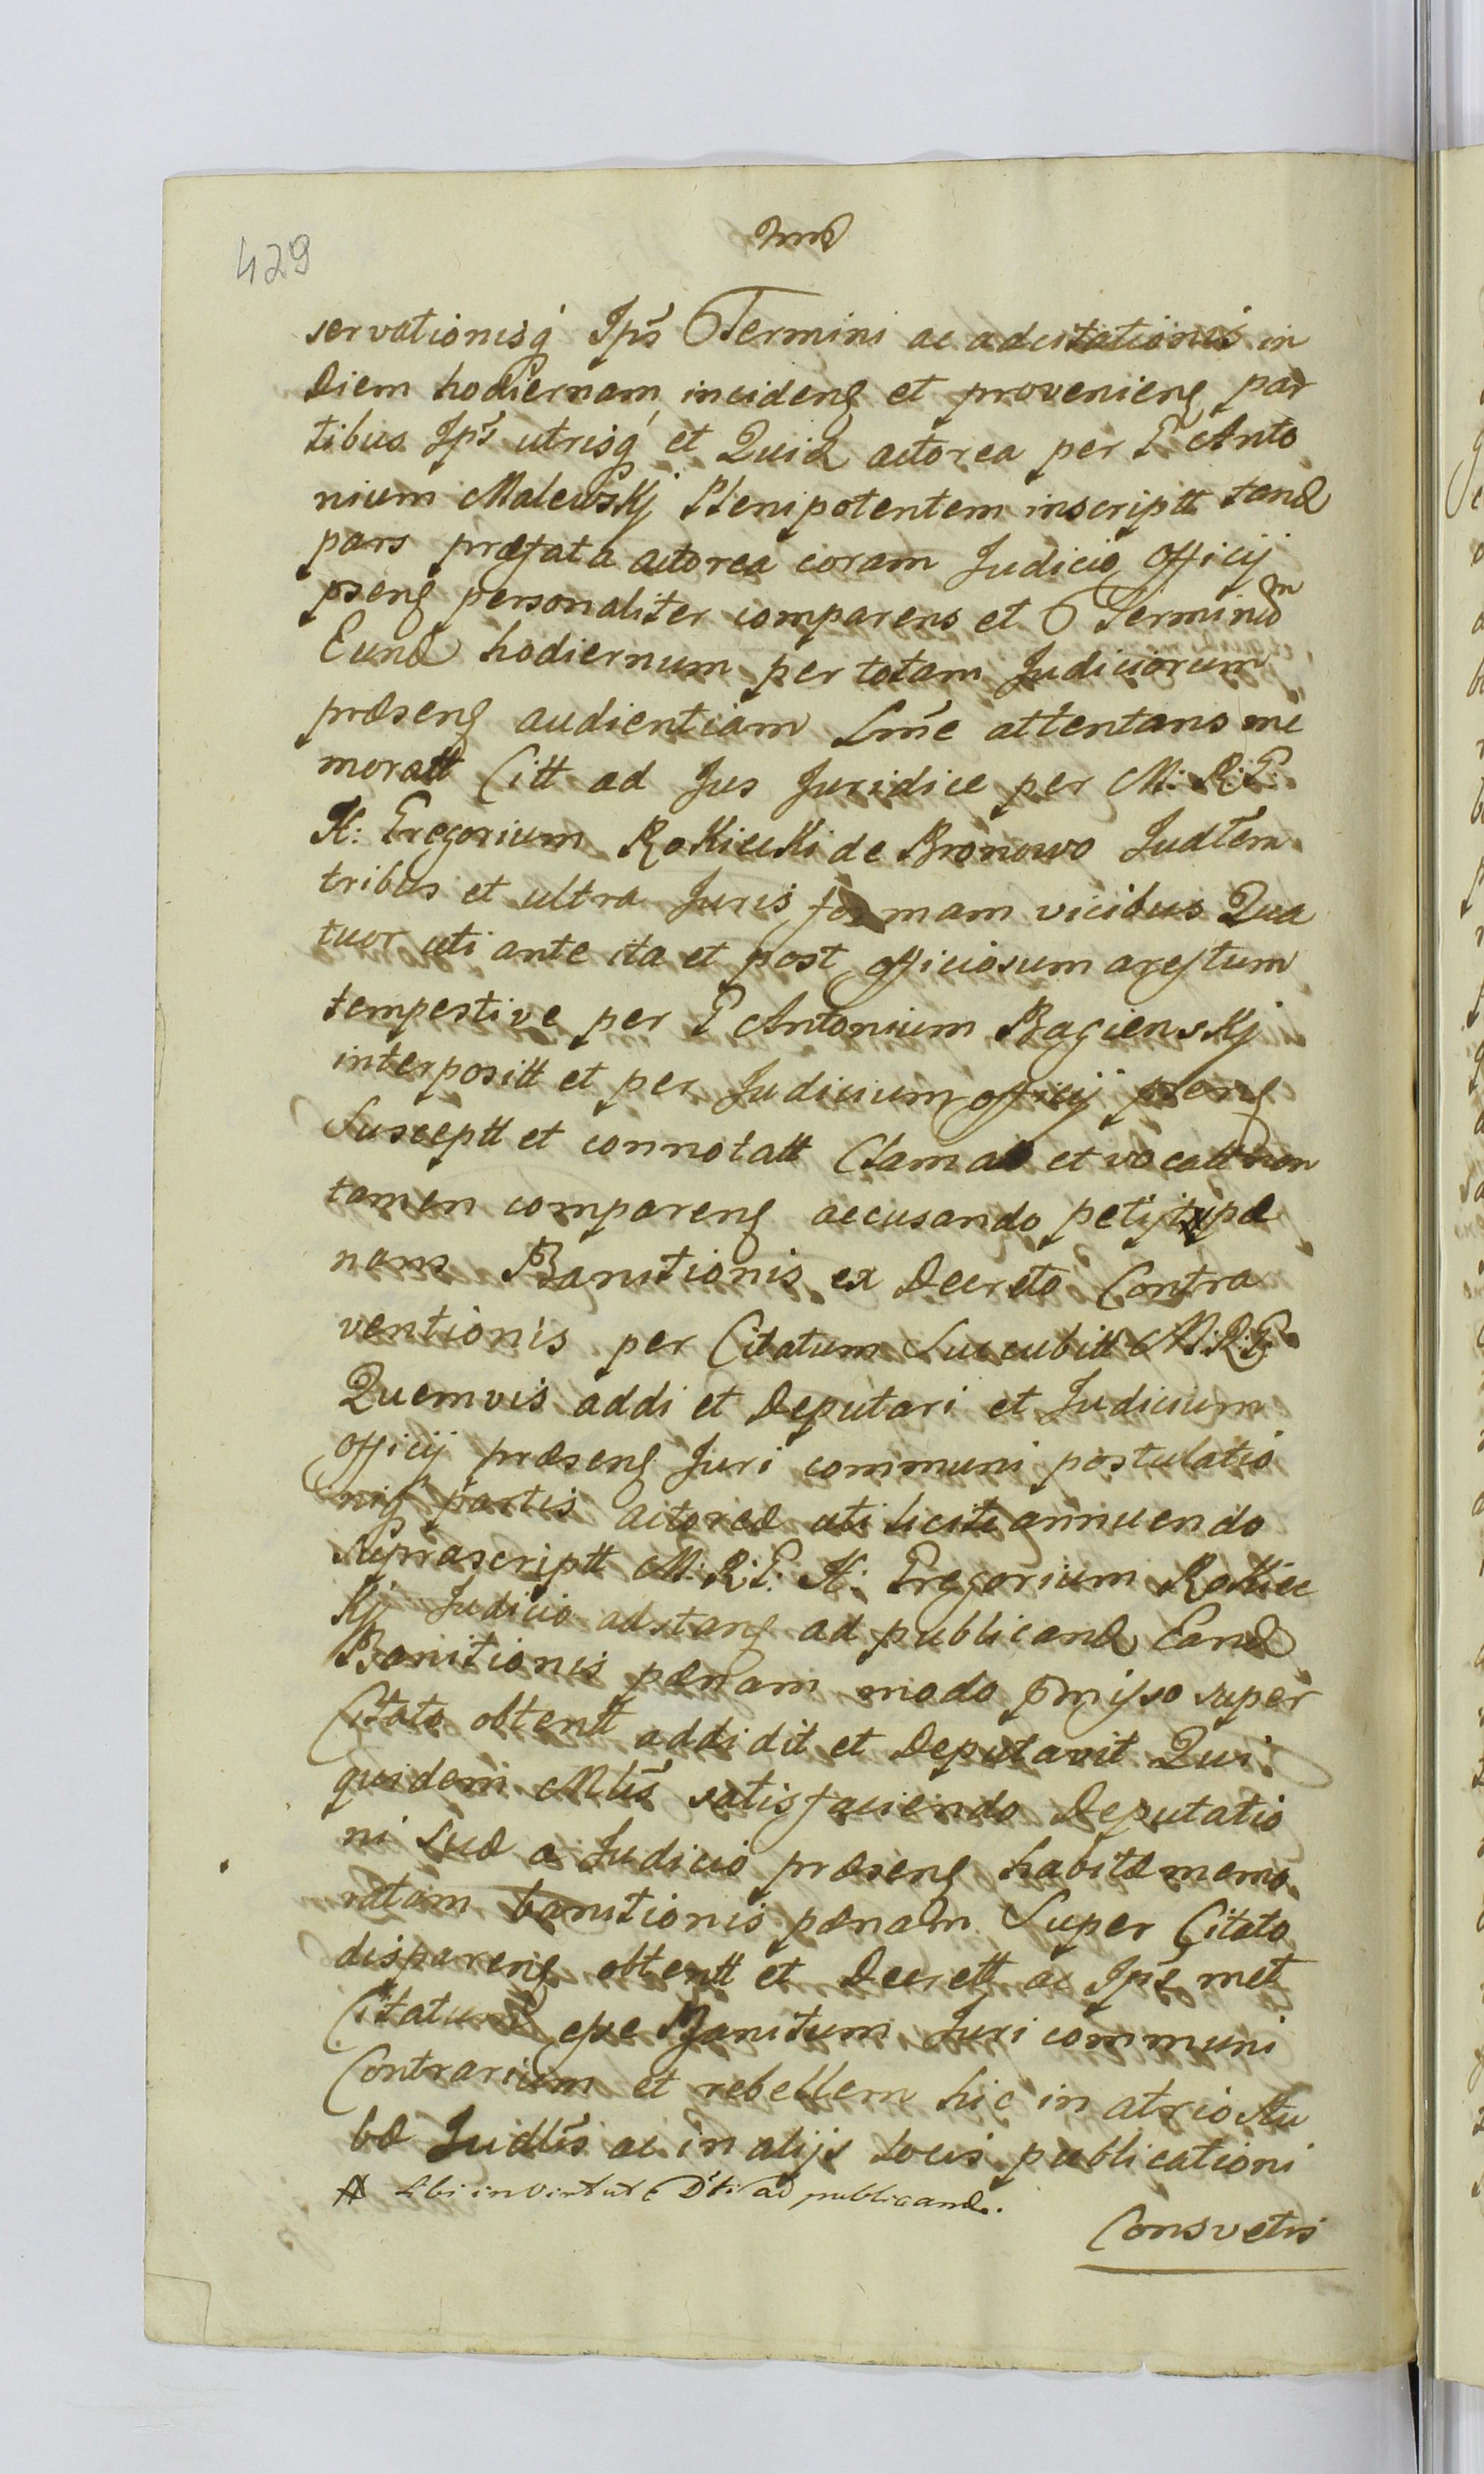 429
servationisq́ Ips Termini ac adcitationis in
Diem hodiernam incideng et provenieng par
tibus Ips utrisq́ et Quid actorea per P Anto
nium Malewskj Plenipotentem inscriptt tand
pars præfata actorea coram Judicio Officij
pseng personaliter comparens et Terminum
Eund hodiernum per totam Judiciorum
præseng audientiam Lm̃e attentans me
moratt Citt ad Jus Juridice per M: R: P:
K: Gregorium Rokicki de Bronowo Judłem
tribus et ultra Juris formam vicibus Qua
tuor uti ante ita et post officiosum arestum
tempestive per P Antonium Bagienskj
interpositt et per Judicium officij pseng
Susceptt et connotatt Clamatt et vocatt non
tamen compareng accusando petijt pæ
nam Banitionis ex Decreto Contra
ventionis per Citatum Succubitt M: R: P:
Quemvis addi et Deputari et Judicium
officij præseng Juri communi postulatio
nig partis actoreæ uti licite annuendo
Suprascriptt M: R: P: K: Gregorium Rokicc
kj Judicio adstang ad publicand Eand
Banitionis pænam modo p̃misso super
Citato obtentt addidit et Deputavit Qui
quidem Mlis satisfaciendo Deputatio
ni suæ a Judicio præseng habitæ memo
ratam banitionis pænam Super Citato
dispareng obtentt et Decrett ac Ips met
Citatum esse Banitum Juri communi
Contrarium et rebellem hic in atrio stu
bæ Judłis ac in alijs locis publicationi
ad publicand.
Consvetis